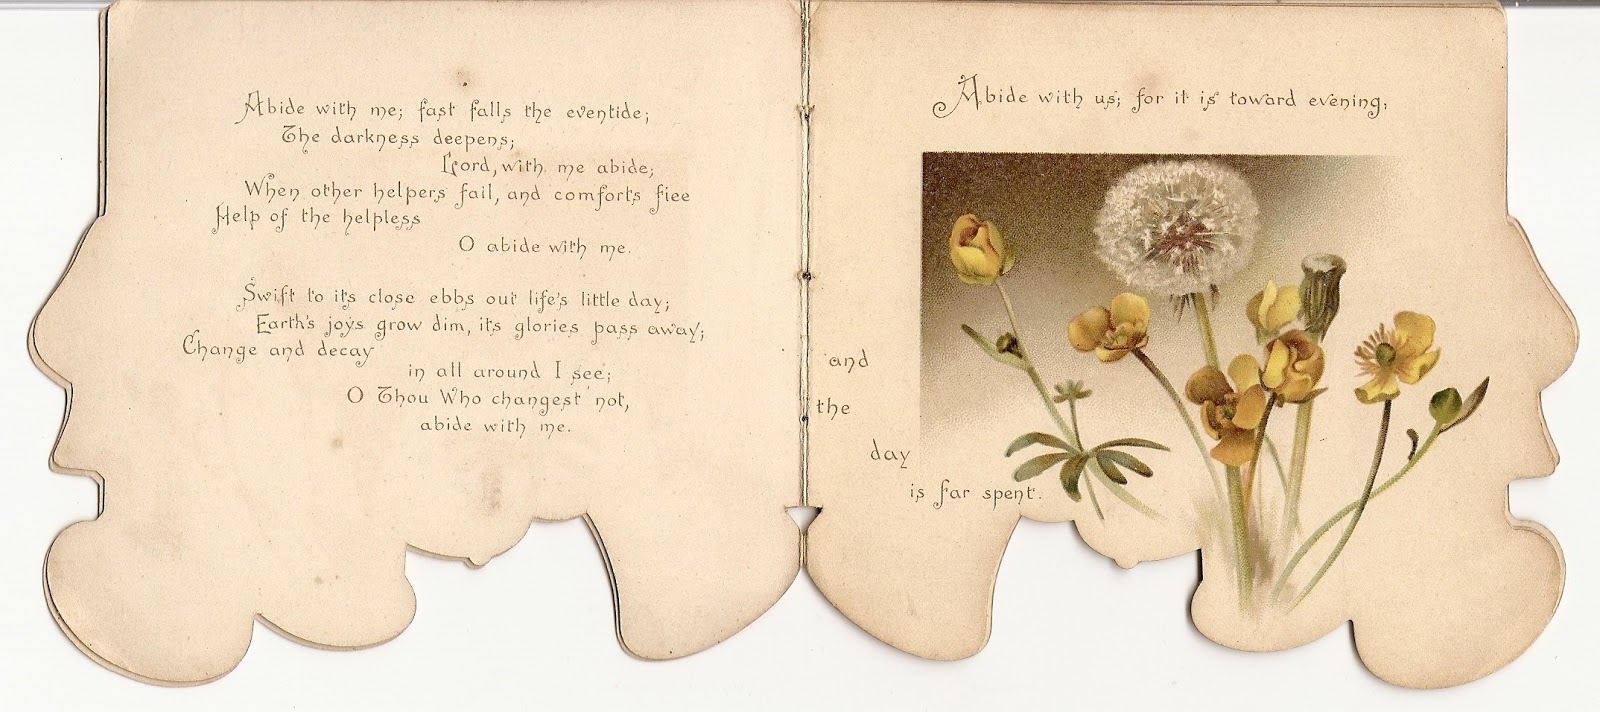 Abide with me; fast falls the eventide;
The darkness deepens;
Lord, with me abide;
When other helpers fail, and comforts flee
Help of the helpless
O abide with me.
Swift to its close ebbs out life's little day;
Earth's joys grow dim, its glories pass away;
Change and decay
in all around I see;
O Thou Who changest not,
abide with me.
Abide with us; for it is toward evening,
and
the
day
is far spent.